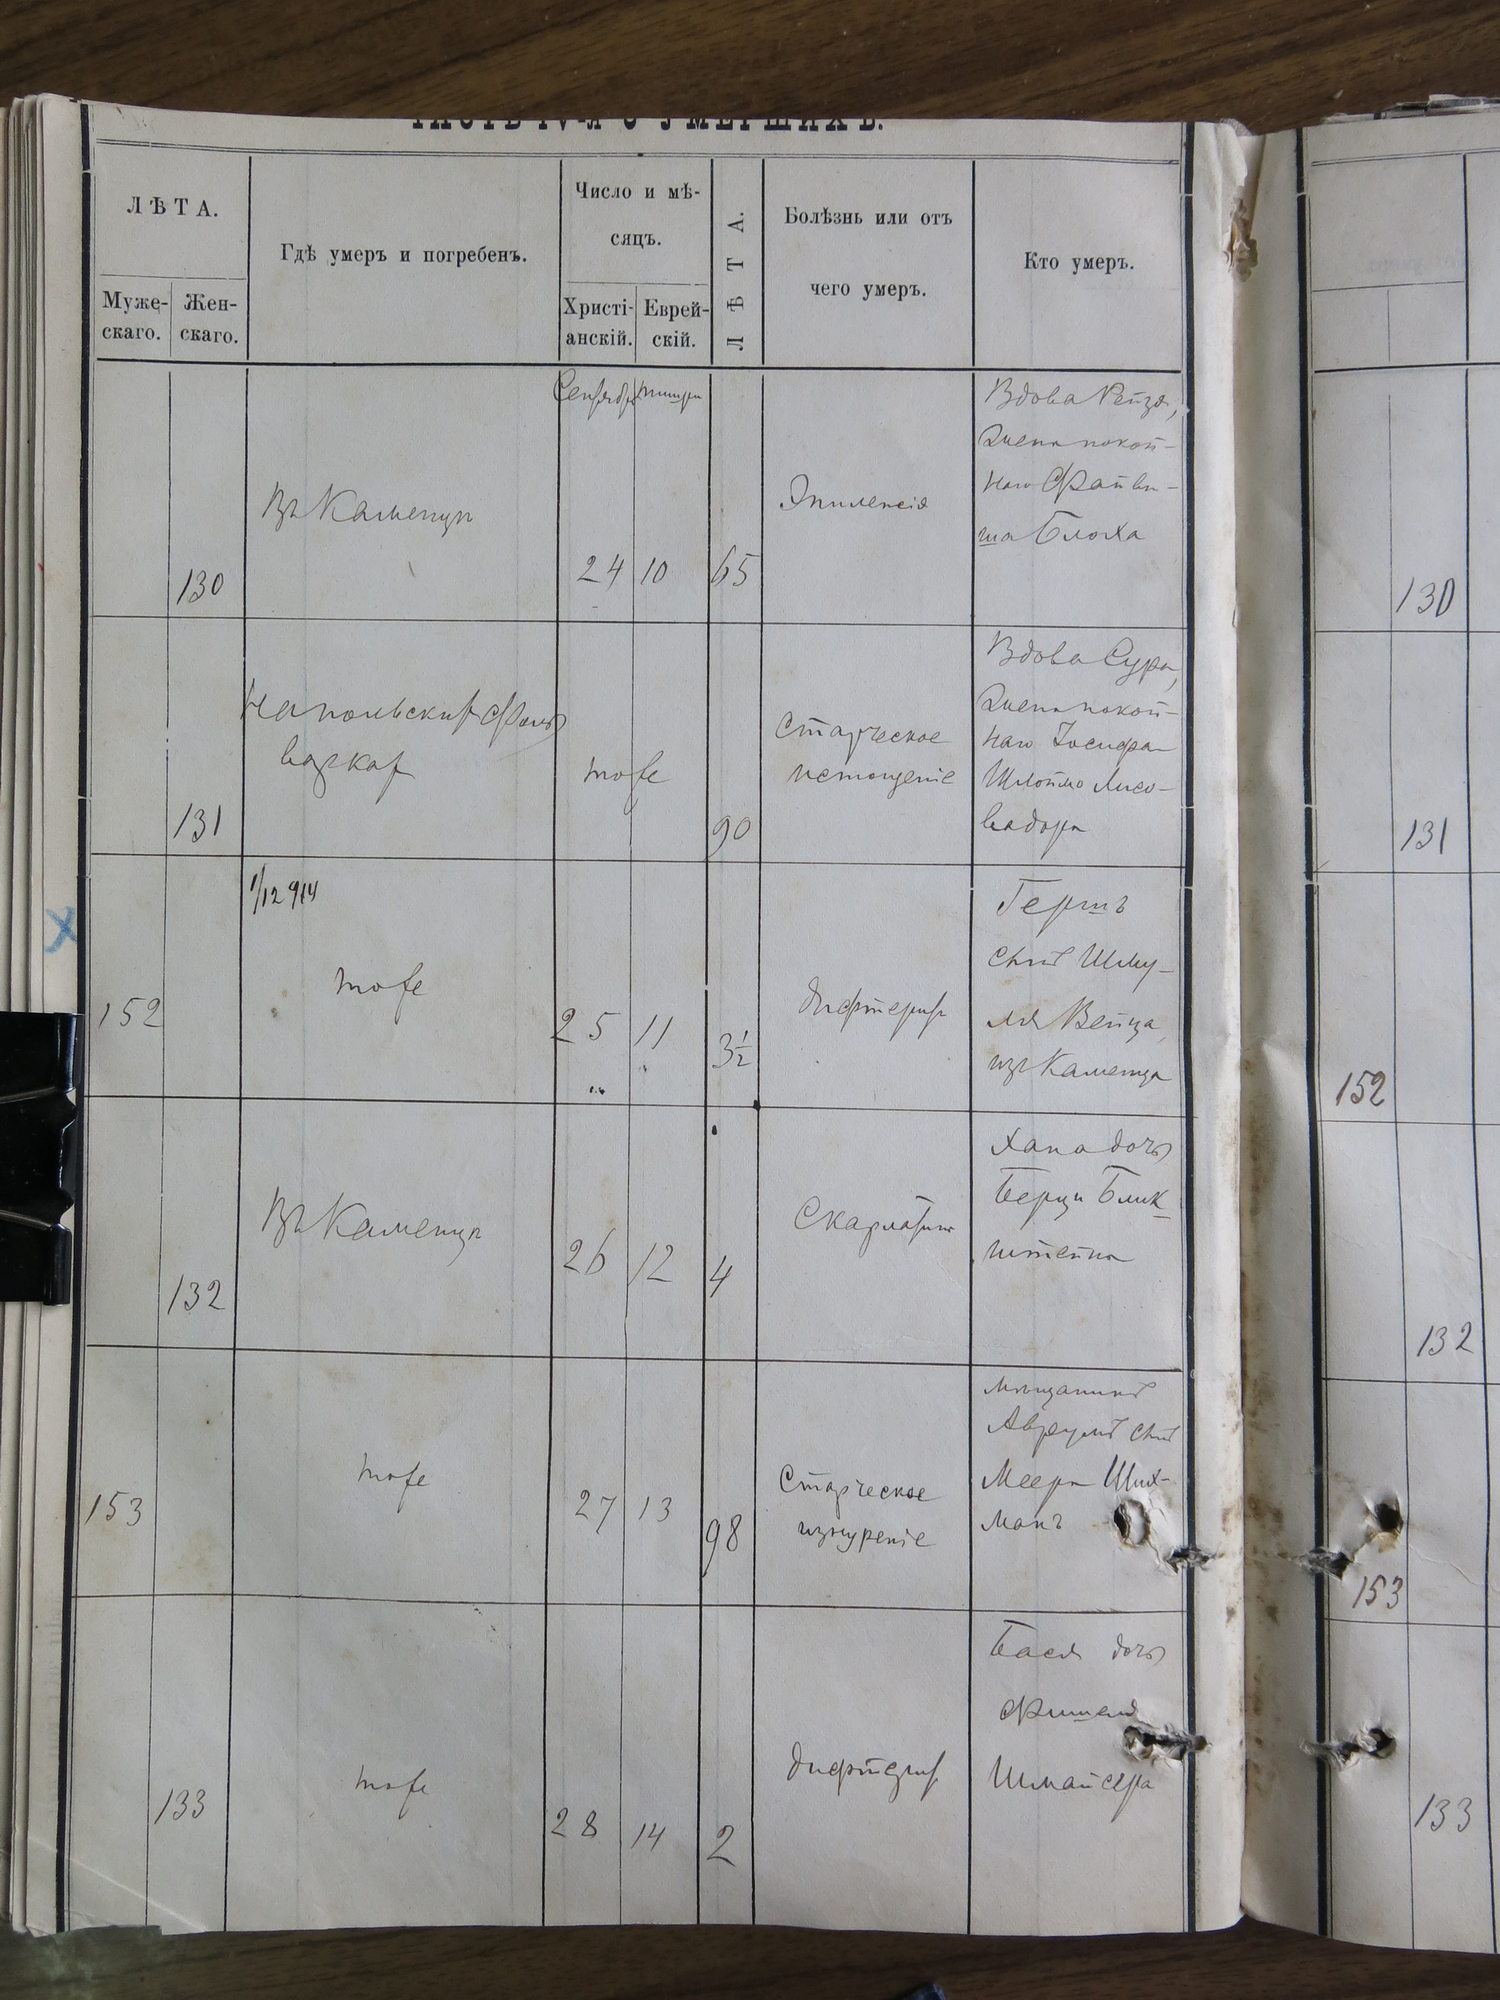 ЧАСТЬ IV-я О УМЕРШИХЪ.
ЛѢТА.
Муже-
скаго.
Жен-
скаго.
Гдѣ умеръ и погребенъ.
Число и мѣ-
сяцъ.
Христі-
анскій.
Еврей-
скій.
ЛѢТА.
Болѣзнь или отъ
чего умеръ.
Кто умеръ.
130
Въ Каменцѣ
Сентябрь
24
Тишри
10
65
Эпилепсія
Вдова Рейзя,
жена покой-
наго Файви-
ша Блоха
130
131
На польскихъ фоль
варкахъ
тоже
90
Старческое
истощеніе
Вдова Сура,
жена покой-
наго Іосифа
Шлоймо Лисо-
вадора
131
1/12 914
152
тоже
25
11
3½
дифтеритъ
Гершъ
сынъ Шму-
ля Вейца
изъ Каменца
152
132
Въ Каменцѣ
26
12
4
Скарлатина
Хана дочь
Берци Блик-
штейна
132
153
тоже
27
13
98
Старческое
изнуреніе
мѣщанинъ
Аврумъ сынъ
Меера Ших-
манъ
153
133
тоже
28
14
2
дифтеритъ
Бася дочь
Фишеля
Шмайсера
133